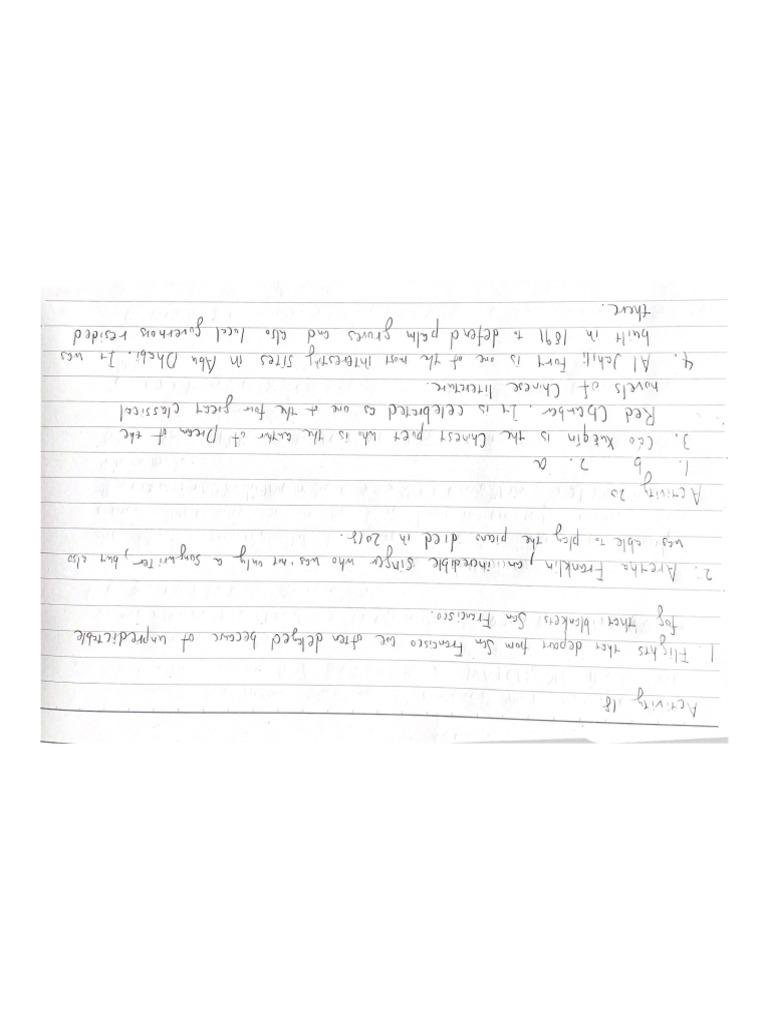 Activity 18
1. Flights that depart from San Francisco are often delayed because of unpredictable
fog that blankets San Francisco.
2. Aretha Franklin, an incredible singer who was not only a songwriter, but also
was able to play the piano died in 2018.
Activity 20
1. b 2. a
3. Cao Xueqin is the Chinest poet who is the author of the Dream of the
Red Chamber. It is celebrated as one of the four great classical
novels of Chinese literature.
4. Al Jahili Fort is one of the most interesting sites in Abu Dhabi. It was
built in 1891 to defend palm groves and also local governors resided
there.